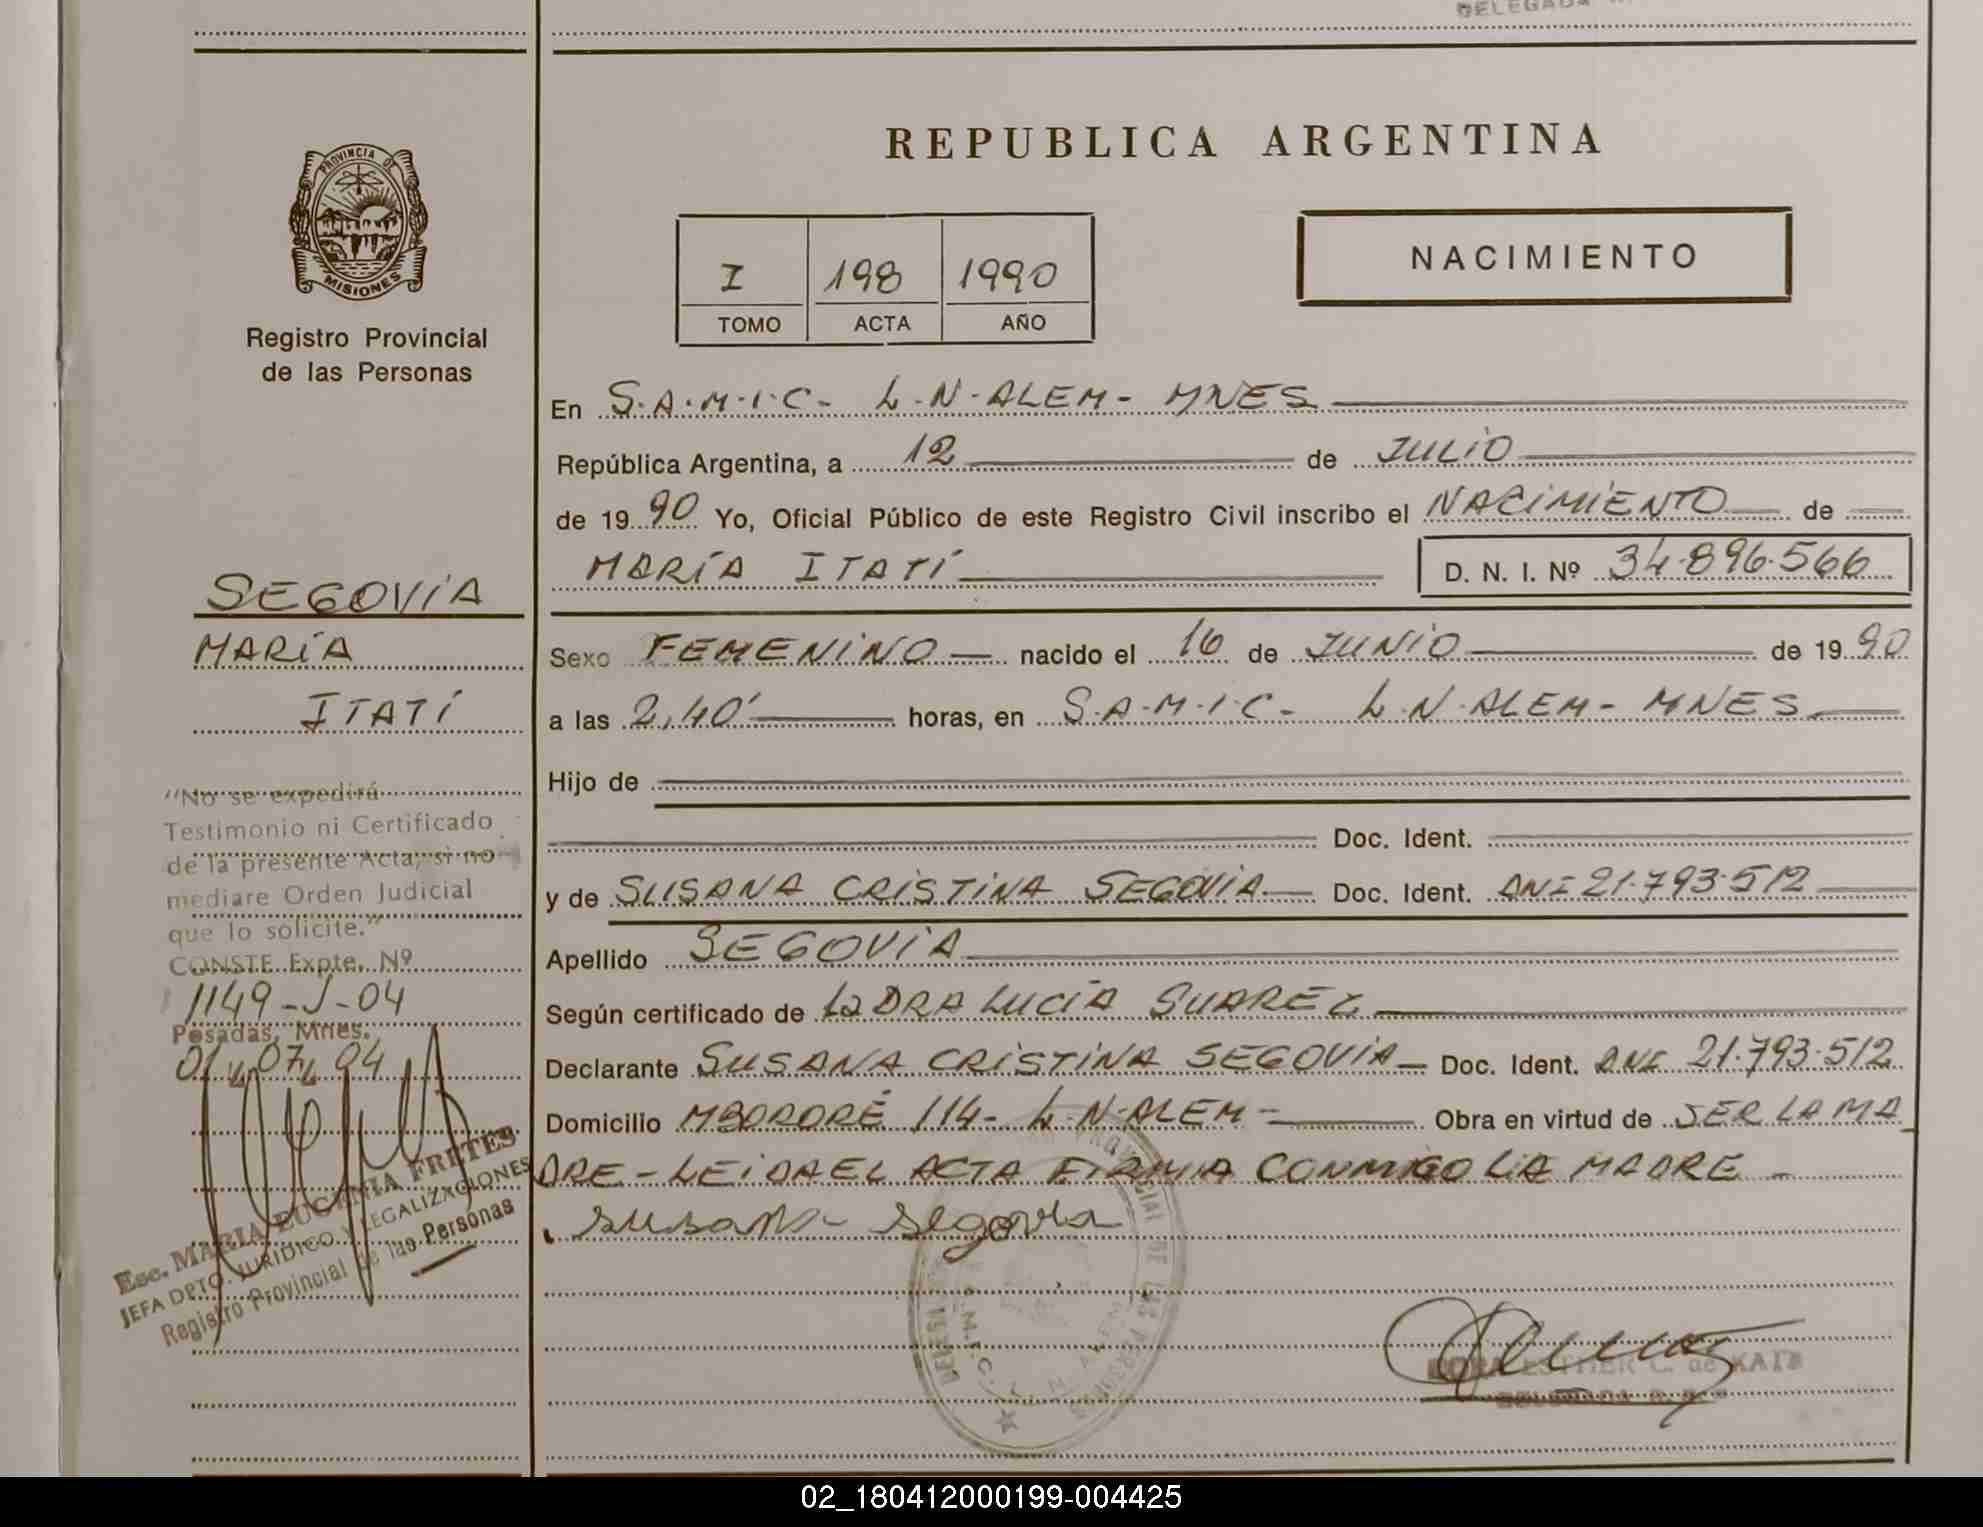 DELEGADA
REPUBLICA ARGENTINA
PROVINCIA DE
MISIONES
Registro Provincial
de las Personas
I 198 1990
TOMO ACTA AÑO
NACIMIENTO
En S.A.M.I.C- L.N.ALEM- MNES
República Argentina, a 12 de JULIO
de 1990 Yo, Oficial Público de este Registro Civil inscribo el NACIMIENTO de
MARÍA ITATÍ D. N. I. Nº 34.896.566
SEGOVIA
MARÍA
ITATÍ
Sexo FEMENINO nacido el 16 de JUNIO de 1990
a las 2,40' horas, en S.A.M.I.C- L.N.ALEM- MNES
Hijo de
Doc. Ident.
y de SUSANA CRISTINA SEGOVIA Doc. Ident. DNI 21.793.512
Apellido SEGOVIA
Según certificado de La DRA LUCÍA SUAREZ
Declarante SUSANA CRISTINA SEGOVIA Doc. Ident. DNI 21.793.512
Domicilio MBORORÉ 114- L.N.ALEM- Obra en virtud de SER LA MA
DRE - LEIDA EL ACTA FIRMA CONMIGO LA MADRE -
Susana Segovia
"No se expedirá
Testimonio ni Certificado
de la presente Acta, si no
mediare Orden Judicial
que lo solicite."
CONSTE Expte. Nº
1149-J-04
Posadas, Mnes.
01 07 04
Esc. MARIA EUGENIA FRETES
JEFA DPTO. JURIDICO Y LEGALIZACIONES
Registro Provincial de las Personas
PROVINCIAL DE LAS PERSONAS
ESTHER C. de
DELEGADA
02_180412000199-004425